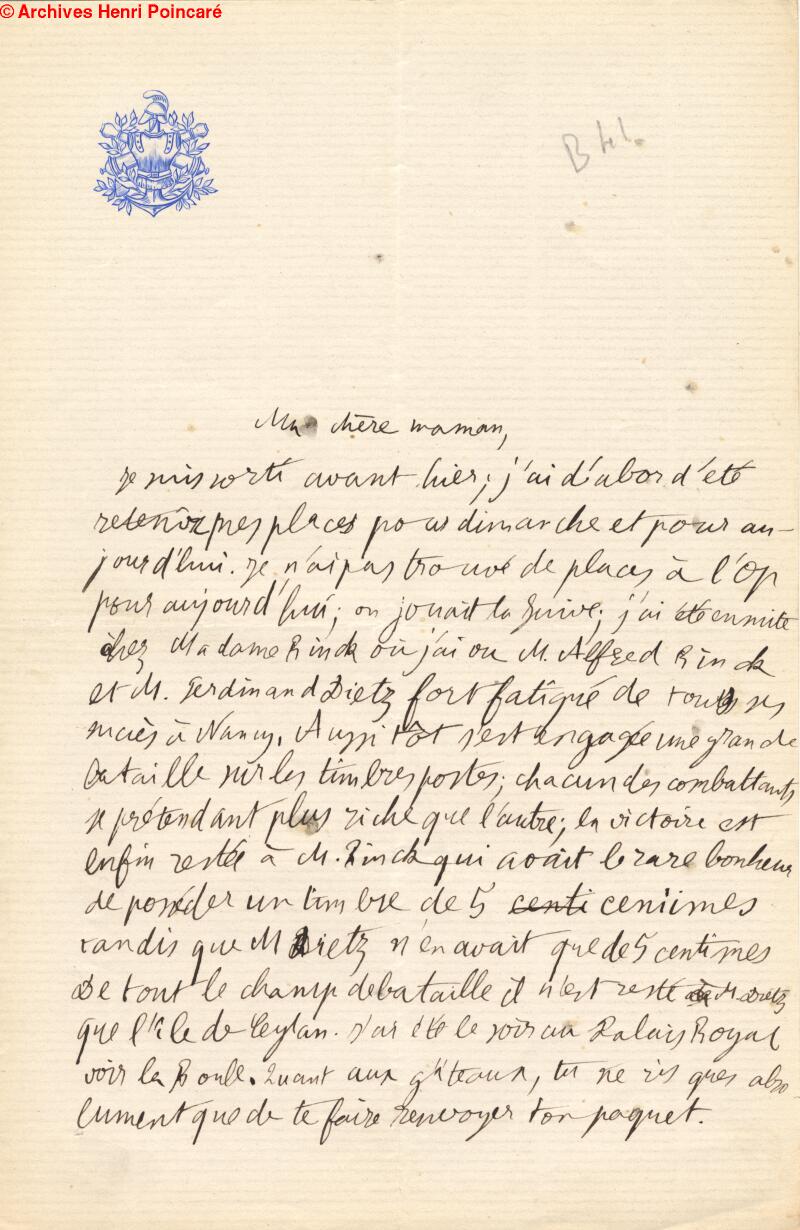 © Archives Henri Poincaré
B 41.
Ma chère maman,
Je suis sorti avant hier; j'ai d'abord été
retenir mes places pour dimanche et pour au-
jourd'hui. Je n'ai pas trouvé de places à l'Op
pour aujourd'hui; on jouait la Juive; j'ai été ensuite
chez Madame Rinck où j'ai vu M. Alfred Rinck
et M. Ferdinand Dietz fort fatigué de tous ses
succès à Nancy. Aussitôt s'est engagée une grande
bataille sur les timbres postes; chacun des combattants
se prétendant plus riche que l'autre; la victoire est
enfin restée à M. Rinck qui avait le rare bonheur
de posséder un timbre de 5 centi centimes
tandis que M Dietz n'en avait que de 5 centimes
De tout le champ de bataille il n'est resté à M. Dietz
que l'île de Ceylan. J'ai été le soir au Palais Royal
voir la Boule. Quant aux gâteaux, tu ne risques abso-
lument que de te faire renvoyer ton paquet.